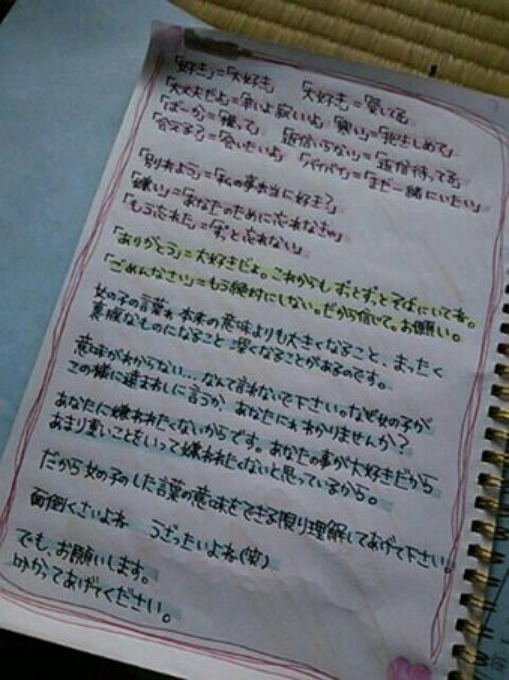 「好き」=「大好き」 「大好き」=「愛してる」
「大丈夫だよ」=「辛いよ寂しいよ」 「寒い」=「抱きしめて」
「ばーか」=「構って」 「返信いらない」=「返信待ってる」
「会える?」=「会いたいよ」 「バイバイ」=「まだ一緒にいたい」
「別れよう」=「私の事本当に好き?」
「嫌い」=「あなたのために忘れなきゃ」
「もう忘れた」=「ずっと忘れない」
「ありがとう」=大好きだよ。これからもずっとずっとそばにいて否。
「ごめんなさい」=もう絶対にしない。だから信じて。お願い。
女の子の言葉わ、本来の意味よりも大きくなること、まったく
真逆なものになること 深くなることがあるのです。
意味がわからない…なんて言わないで下さい。なぜ女の子が
この様に遠まわしに言うか、あなたにわわかりませんか?
あなたに嫌われたくないからです。あなたの事が大好きだから
あまり重いことをいって嫌われたくないと思っているから。
だから女の子のした言葉の意味をできる限り理解してあげて下さい。
面倒くさいよね うざったいよね(笑)
でも、お願いします。
分かってあげてください。